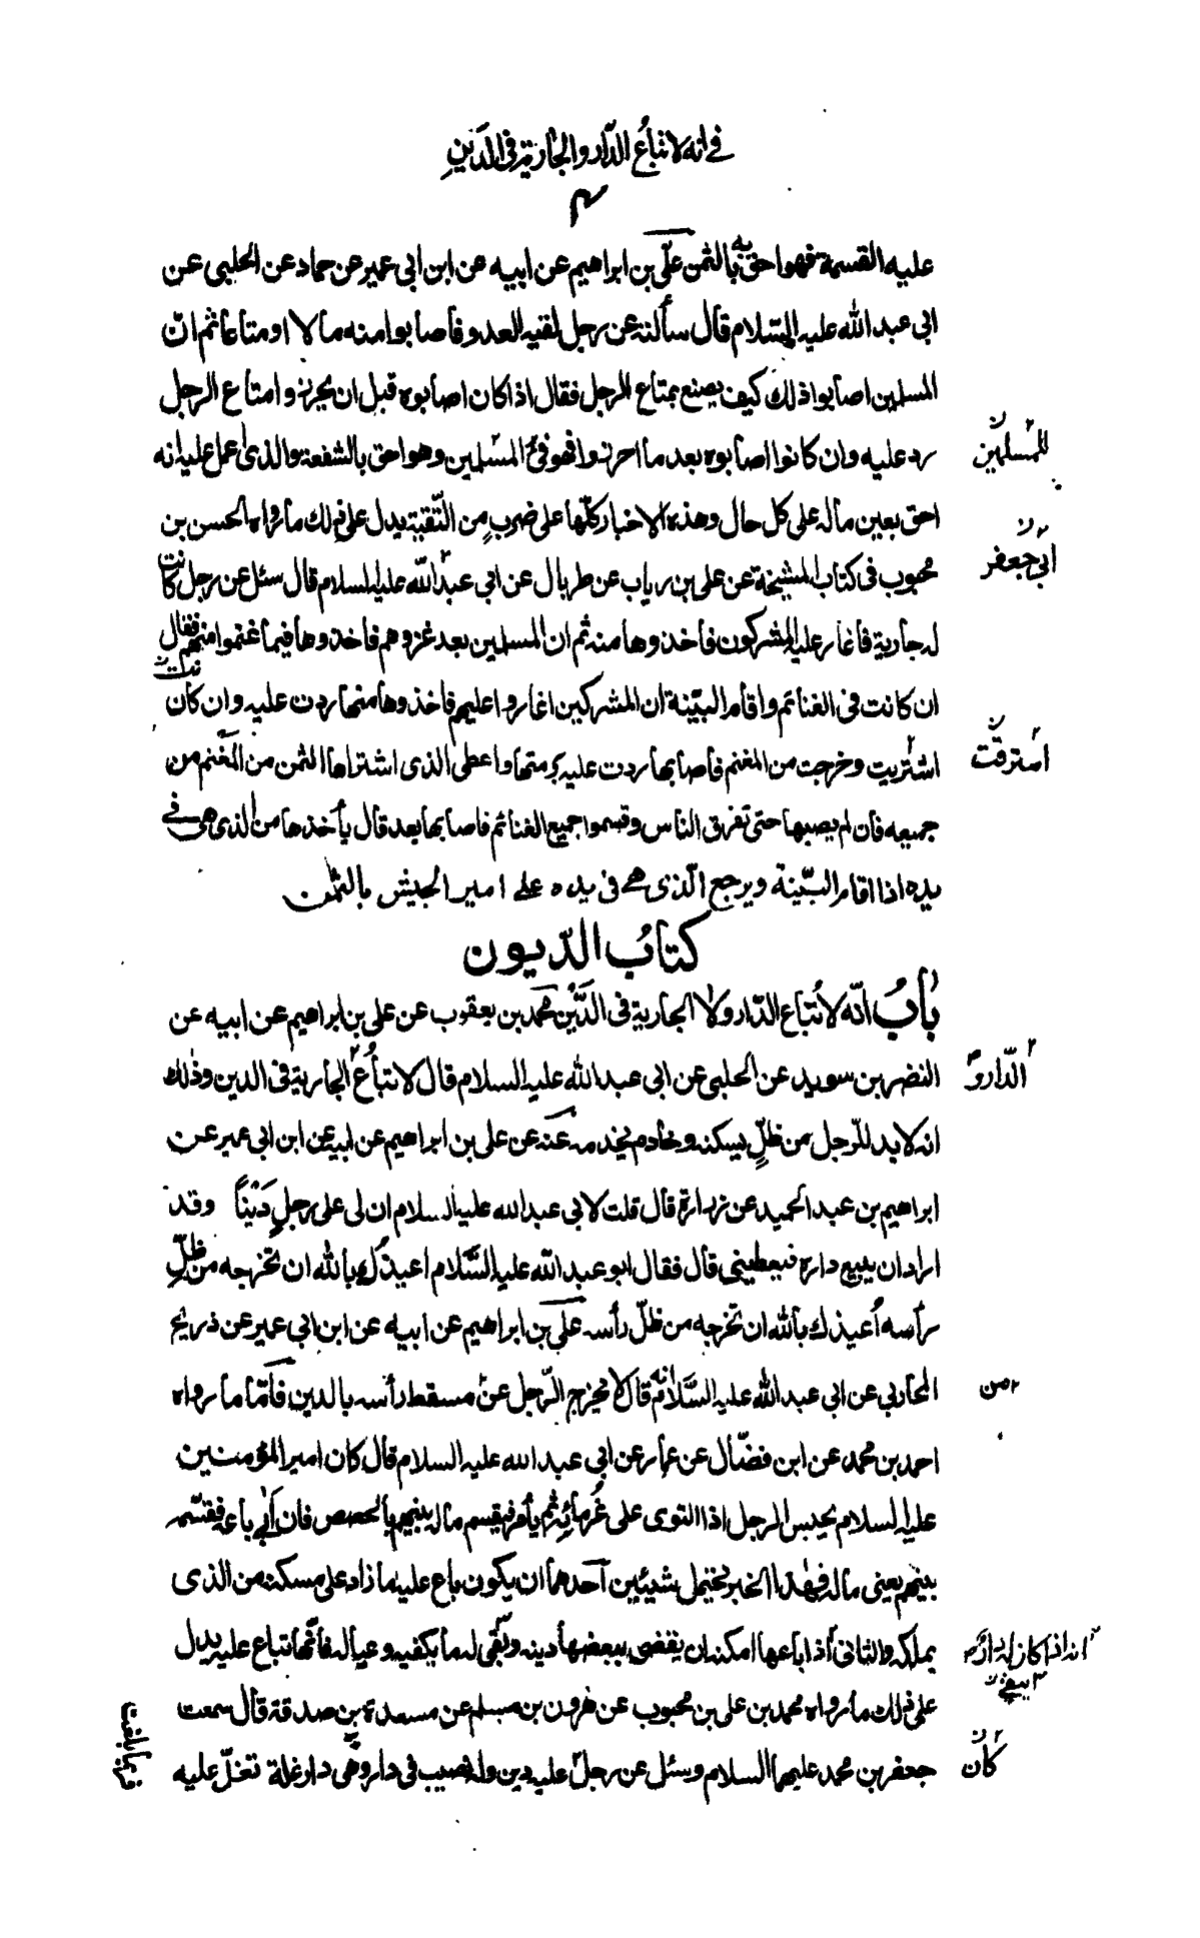 في انه لا تباع الدار والجارية في الدَين
عليه القسمة فهو احق به بالثمن علي بن ابراهيم عن ابيه عن ابن ابي عمير عن حماد عن الحلبي عن
ابي عبد الله عليه السلام قال سألته عن رجل لقيه العدو فاصابوا منه مالا او متاعا ثم انّ
المسلمين اصابوا ذلك كيف يصنع بمتاع الرجل فقال اذا كان اصابوه قبل ان يحرزوا متاع الرجل
رد عليه وان كانوا اصابوه بعد ما احرزوا فهو فئ المسلمين وهو احق بالشفعة والذي اعمل عليه انه
للمسلمين
احق بعين ماله على كل حال وهذه الاخبار كلّها على ضربٍ من التّقية يدل على ذلك ما رواه الحسن بن
محبوب في كتاب المشيخة عن علي بن رياب عن طربال عن ابي عبد الله عليه السلام قال سئل عن رجل كانت
ابي جعفر
له جارية فاغار عليه المشركون فاخذوها منه ثم ان المسلمين بعد غزوهم فاخذوها فيما غنموا منهم فقال
ان كانت في الغنائم واقام البيّنة ان المشركين اغاروا عليهم فاخذوها منه ردت عليه وان كان
اشتريت وخرجت من المغنم فاصابها ردت عليه برمتها واعطى الذي اشتراها الثمن من المغنم من
استرقت
جميعه فان لم يصبها حتى تفرق الناس وقسموا جميع الغنائم فاصابها بعد قال يأخذها من الذي هي في
يده اذا اقام البيّنة ويرجع الّذي هي في يده على امير الجيش بالثمن
كتابُ الدّيون
بابُ انّه لا تُباع الدّار ولا الجارية في الدَّيْن محمد بن يعقوب عن علي بن ابراهيم عن ابيه عن
النضر بن سويد عن الحلبي عن ابي عبد الله عليه السلام قال لا تباعُ الجارية في الدين وذلك
الدّار و
انه لا بد للرّجل من ظلٍّ يسكنه وخادم يخدمه عنه عن علي بن ابراهيم عن ابيه عن ابن ابي عمير عن
ابراهيم بن عبد الحميد عن زرارة قال قلت لابي عبد الله عليه السلام ان لي على رجلٍ دَيْناً وقد
اراد ان يبيع داره فيعطيني قال فقال ابو عبد الله عليه السَّلام اعيذُك بالله ان تخرجه من ظلِّ
رأسه اُعيذك بالله ان تخرجه من ظلّ رأسه علي بن ابراهيم عن ابيه عن ابن ابي عمير عن ذريح
المحاربي عن ابي عبد الله عليه السَّلام انه قال لا يخرج الرّجل عن مسقط رأسه بالدين فأمّا ما رواه
من
احمد بن محمد عن ابن فضّال عن عمار عن ابي عبد الله عليه السلام قال كان امير المؤمنين
عليه السلام يحبس الرجل اذا التوى على غُرمائِه ثم يأمر فيقسم ماله بينهم بالحصص فان اَبي باعه فقسّمه
بينهم يعني ماله فهذا الخبر يحتمل شيئين اَحدهما ان يكون باع عليه ما زاد على مسكنه من الذي
يملكه والثاني اذا باعها امكنه ان يقضي ببعضها دينه وتبقى له ما يكفيه وعياله فانّها تباع عليه يدل
انه اذا كان له دار
يبقى
على ذلك ما رواه محمد بن علي بن محبوب عن هرون بن مسلم عن مسعدة بن صدقة قال سمعت
جعفر بن محمد عليهما السلام وسئل عن رجل عليه دين وله نصيب في دار وهي دار غلة تغلّ عليه
كان
فربما بلغت